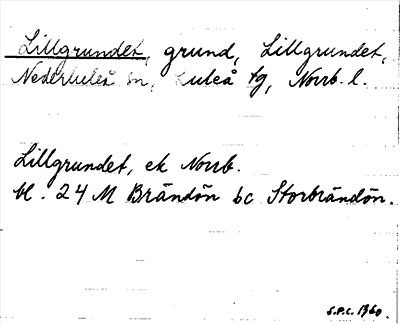 Lillgrundet, grund, Lillgrundet,
Nederluleå sn, Luleå tg, Norrb. l.
Lillgrundet, ek Norrb.
bl. 24 M Brändön bc Storbrändön.
S.P.C. 1960.